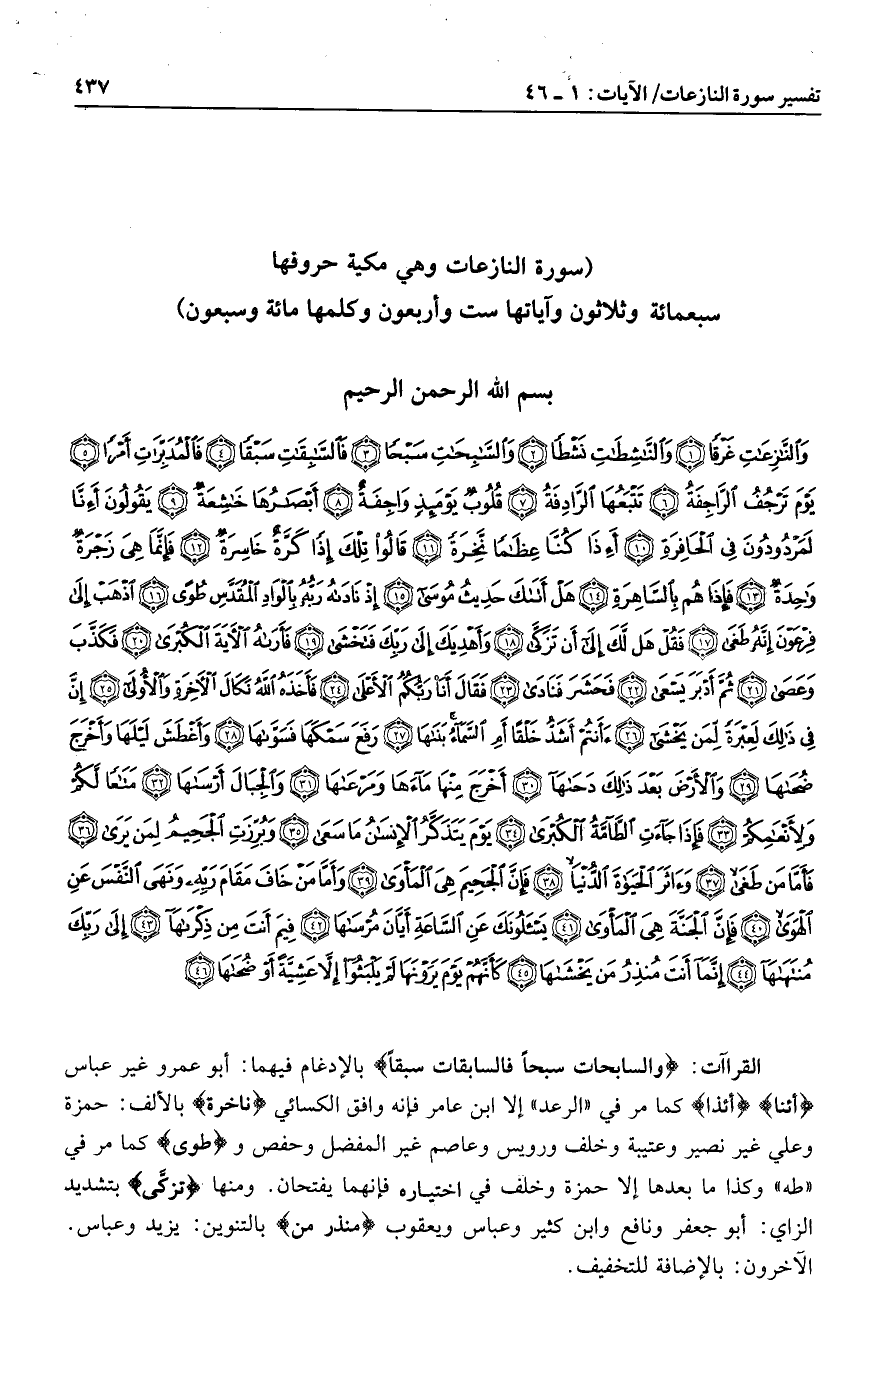 تفسير سورة النازعات/ الآيات: ١ - ٤٦
٤٣٧
(سورة النازعات وهي مكية حروفها
سبعمائة وثلاثون وآياتها ست وأربعون وكلمها مائة وسبعون)
بسم الله الرحمن الرحيم
وَٱلنَّـٰزِعَـٰتِ غَرۡقٗا ١ وَٱلنَّـٰشِطَـٰتِ نَشۡطٗا ٢ وَٱلسَّـٰبِحَـٰتِ سَبۡحٗا ٣ فَٱلسَّـٰبِقَـٰتِ سَبۡقٗا ٤ فَٱلۡمُدَبِّرَٰتِ أَمۡرٗا ٥
يَوۡمَ تَرۡجُفُ ٱلرَّاجِفَةُ ٦ تَتۡبَعُهَا ٱلرَّادِفَةُ ٧ قُلُوبٞ يَوۡمَئِذٖ وَاجِفَةٌ ٨ أَبۡصَـٰرُهَا خَـٰشِعَةٞ ٩ يَقُولُونَ أَءِنَّا
لَمَرۡدُودُونَ فِي ٱلۡحَافِرَةِ ١٠ أَءِذَا كُنَّا عِظَـٰمٗا نَّخِرَةٗ ١١ قَالُواْ تِلۡكَ إِذٗا كَرَّةٌ خَاسِرَةٞ ١٢ فَإِنَّمَا هِيَ زَجۡرَةٞ
وَٰحِدَةٞ ١٣ فَإِذَا هُم بِٱلسَّاهِرَةِ ١٤ هَلۡ أَتَىٰكَ حَدِيثُ مُوسَىٰٓ ١٥ إِذۡ نَادَىٰهُ رَبُّهُۥ بِٱلۡوَادِ ٱلۡمُقَدَّسِ طُوًى ١٦ ٱذۡهَبۡ إِلَىٰ
فِرۡعَوۡنَ إِنَّهُۥ طَغَىٰ ١٧ فَقُلۡ هَل لَّكَ إِلَىٰٓ أَن تَزَكَّىٰ ١٨ وَأَهۡدِيَكَ إِلَىٰ رَبِّكَ فَتَخۡشَىٰ ١٩ فَأَرَىٰهُ ٱلۡأٓيَةَ ٱلۡكُبۡرَىٰ ٢٠ فَكَذَّبَ
وَعَصَىٰ ٢١ ثُمَّ أَدۡبَرَ يَسۡعَىٰ ٢٢ فَحَشَرَ فَنَادَىٰ ٢٣ فَقَالَ أَنَا۠ رَبُّكُمُ ٱلۡأَعۡلَىٰ ٢٤ فَأَخَذَهُ ٱللَّهُ نَكَالَ ٱلۡأٓخِرَةِ وَٱلۡأُولَىٰٓ ٢٥ إِنَّ
فِي ذَٰلِكَ لَعِبۡرَةٗ لِّمَن يَخۡشَىٰٓ ٢٦ ءَأَنتُمۡ أَشَدُّ خَلۡقًا أَمِ ٱلسَّمَآءُۚ بَنَىٰهَا ٢٧ رَفَعَ سَمۡكَهَا فَسَوَّىٰهَا ٢٨ وَأَغۡطَشَ لَيۡلَهَا وَأَخۡرَجَ
ضُحَىٰهَا ٢٩ وَٱلۡأَرۡضَ بَعۡدَ ذَٰلِكَ دَحَىٰهَآ ٣٠ أَخۡرَجَ مِنۡهَا مَآءَهَا وَمَرۡعَىٰهَا ٣١ وَٱلۡجِبَالَ أَرۡسَىٰهَا ٣٢ مَتَـٰعٗا لَّكُمۡ
وَلِأَنۡعَـٰمِكُمۡ ٣٣ فَإِذَا جَآءَتِ ٱلطَّآمَّةُ ٱلۡكُبۡرَىٰ ٣٤ يَوۡمَ يَتَذَكَّرُ ٱلۡإِنسَـٰنُ مَا سَعَىٰ ٣٥ وَبُرِّزَتِ ٱلۡجَحِيمُ لِمَن يَرَىٰ ٣٦
فَأَمَّا مَن طَغَىٰ ٣٧ وَءَاثَرَ ٱلۡحَيَوٰةَ ٱلدُّنۡيَا ٣٨ فَإِنَّ ٱلۡجَحِيمَ هِيَ ٱلۡمَأۡوَىٰ ٣٩ وَأَمَّا مَنۡ خَافَ مَقَامَ رَبِّهِۦ وَنَهَى ٱلنَّفۡسَ عَنِ
ٱلۡهَوَىٰ ٤٠ فَإِنَّ ٱلۡجَنَّةَ هِيَ ٱلۡمَأۡوَىٰ ٤١ يَسۡـَٔلُونَكَ عَنِ ٱلسَّاعَةِ أَيَّانَ مُرۡسَىٰهَا ٤٢ فِيمَ أَنتَ مِن ذِكۡرَىٰهَآ ٤٣ إِلَىٰ رَبِّكَ
مُنتَهَىٰهَآ ٤٤ إِنَّمَآ أَنتَ مُنذِرُ مَن يَخۡشَىٰهَا ٤٥ كَأَنَّهُمۡ يَوۡمَ يَرَوۡنَهَا لَمۡ يَلۡبَثُوٓاْ إِلَّا عَشِيَّةً أَوۡ ضُحَىٰهَا ٤٦
القراآت: ﴿والسابحات سبحاً فالسابقات سبقاً﴾ بالإدغام فيهما: أبو عمرو غير عباس
﴿أئنا﴾ ﴿أئذا﴾ كما مر في «الرعد» إلا ابن عامر فإنه وافق الكسائي ﴿ناخرة﴾ بالألف: حمزة
وعلي غير نصير وعتيبة وخلف ورويس وعاصم غير المفضل وحفص و ﴿طوى﴾ كما مر في
«طه» وكذا ما بعدها إلا حمزة وخلف في اختياره فإنهما يفتحان. ومنها ﴿تزكَّى﴾ بتشديد
الزاي: أبو جعفر ونافع وابن كثير وعباس ويعقوب ﴿منذر من﴾ بالتنوين: يزيد وعباس.
الآخرون: بالإضافة للتخفيف.